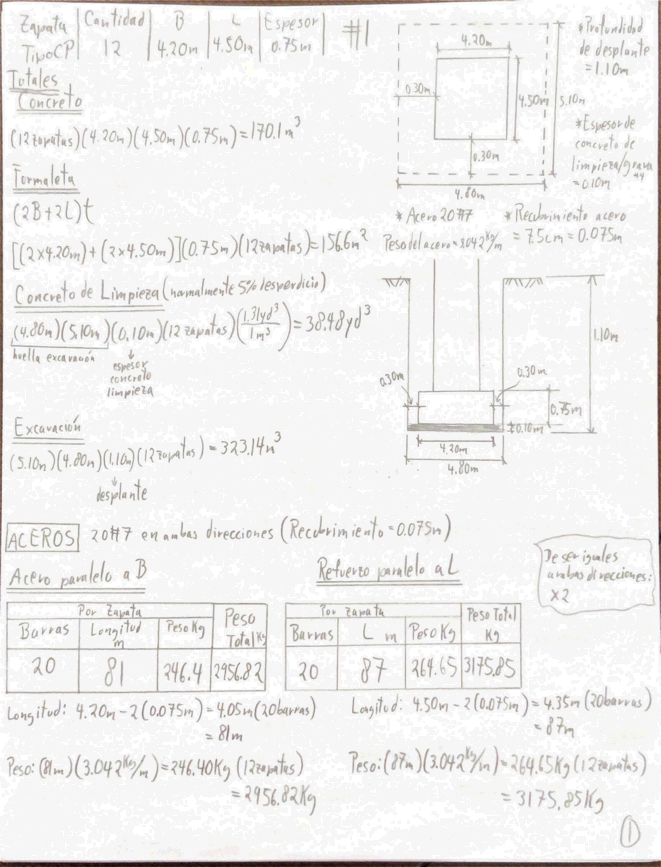 Zapata | Cantidad | B | L | Espesor #1
Tipo CP | 12 | 4.20m | 4.50m | 0.75m
Totales
Concreto
(12 zapatas)(4.20m)(4.50m)(0.75m) = 170.1m³
Formaleta
(2B+2L)t
[(2x4.20m)+(2x4.50m)](0.75m)(12 zapatas) = 156.6m²
Concreto de Limpieza (normalmente 5% desperdicio)
(4.80m)(5.10m)(0.10m)(12 zapatas)(1.31yd³/1m³) = 38.48yd³
huella excavación
espesor
concreto
limpieza
Excavación
(5.10m)(4.80m)(1.10m)(12 zapatas) = 323.14m³
desplante
4.20m
0.30m
4.50m
5.10m
0.30m
4.80m
*Profundidad
de desplante
= 1.10m
*Espesor de
concreto de
limpieza/grava
#4
= 0.10m
* Acero 20#7
Peso del acero = 3.042 Kg/m
* Recubrimiento acero
= 7.5cm = 0.075m
1.10m
0.30m
0.30m
0.75m
0.10m
4.20m
4.80m
ACEROS 20#7 en ambas direcciones (Recubrimiento = 0.075m)
De ser iguales
ambas direcciones:
x2
Acero paralelo a B
Por Zapata | Peso Total Kg
Barras | Longitud m | Peso Kg
20 | 81 | 246.4 | 2956.82
Longitud: 4.20m - 2(0.075m) = 4.05m (20 barras)
= 81m
Peso: (81m)(3.042 Kg/m) = 246.40Kg (12 zapatas)
= 2956.82Kg
Refuerzo paralelo a L
Por Zapata | Peso Total Kg
Barras | L m | Peso Kg
20 | 87 | 264.65 | 3175.85
Longitud: 4.50m - 2(0.075m) = 4.35m (20 barras)
= 87m
Peso: (87m)(3.042 Kg/m) = 264.65Kg (12 zapatas)
= 3175.85Kg
1